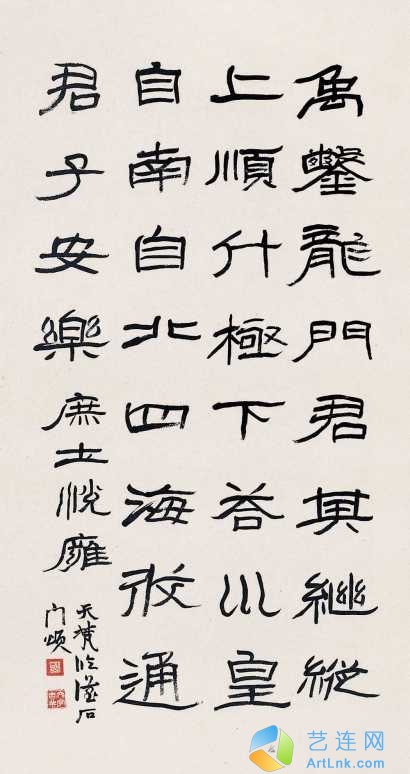 禹鑿龍門君其繼縱
上順斗極下荅巛皇
自南自北四海攸通
君子安樂庶士悅廱
天 临漢石
门颂
艺连网
ArtLnk.com